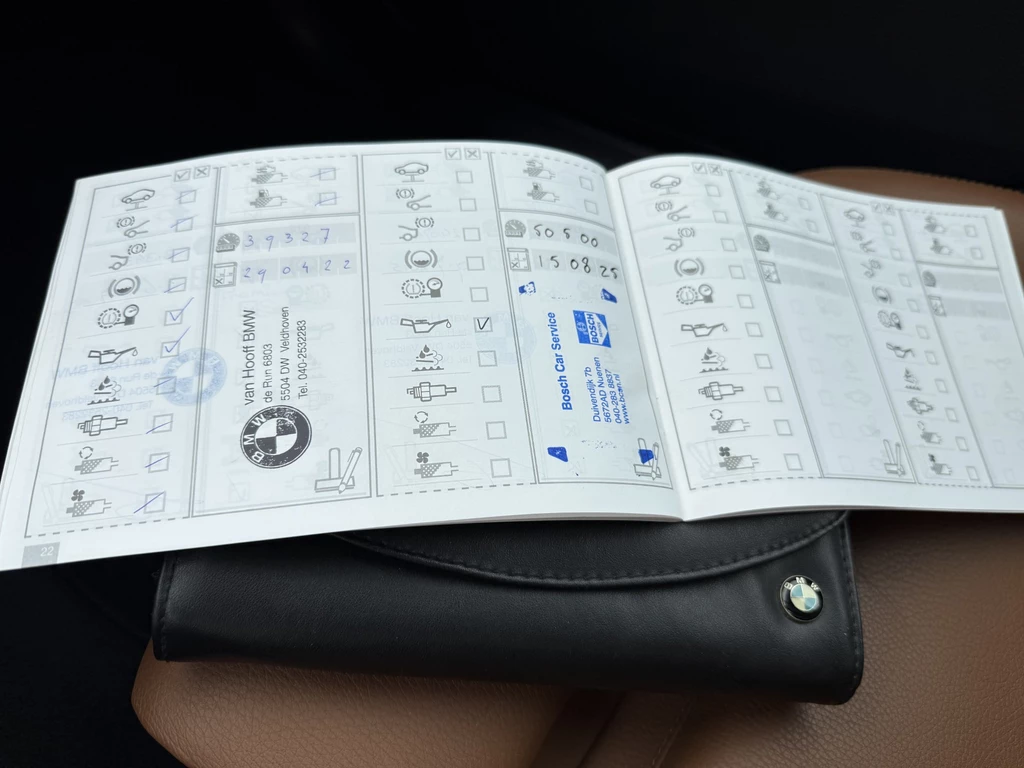 39327
290422
van Hooff BMW
de Run 6803
5504 DW Veldhoven
Tel. 040-2532283
BMW
50500
150825
Bosch Car Service
BOSCH
Duivendijk 7b
5672AD Nuenen
040-283 8837
www.bcsn.nl
22
BMW